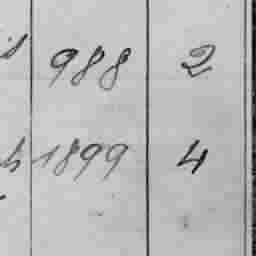 988 2
1899 4